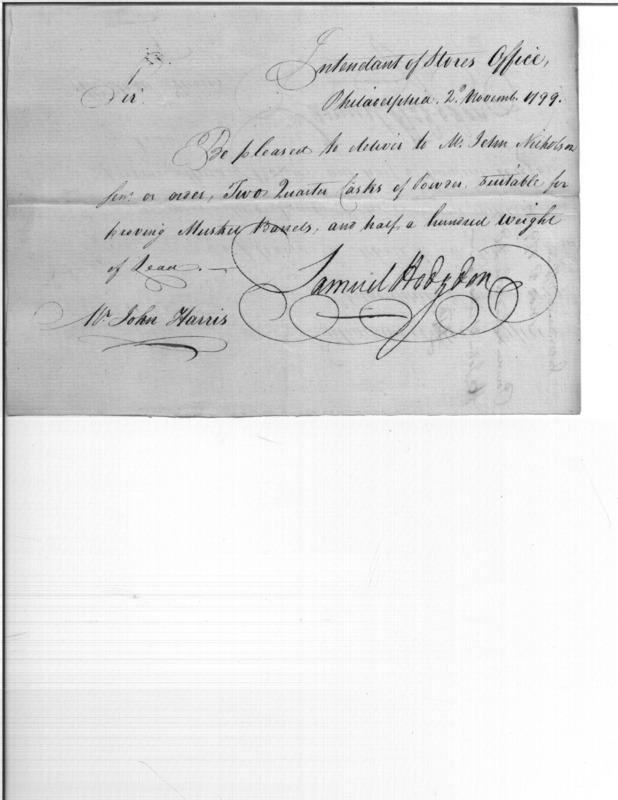 Intendant of Stores Office,
Philadelphia. 2d. Novemb. 1799.
Sir
Be pleased to deliver to Mr. John Nicholson
Senr. or order, Two Quarter Casks of Powder, suitable for
proving Musket Barrels, and half a hundred weight
of Lead.
Samuel Hodgdon
Mr John Harris